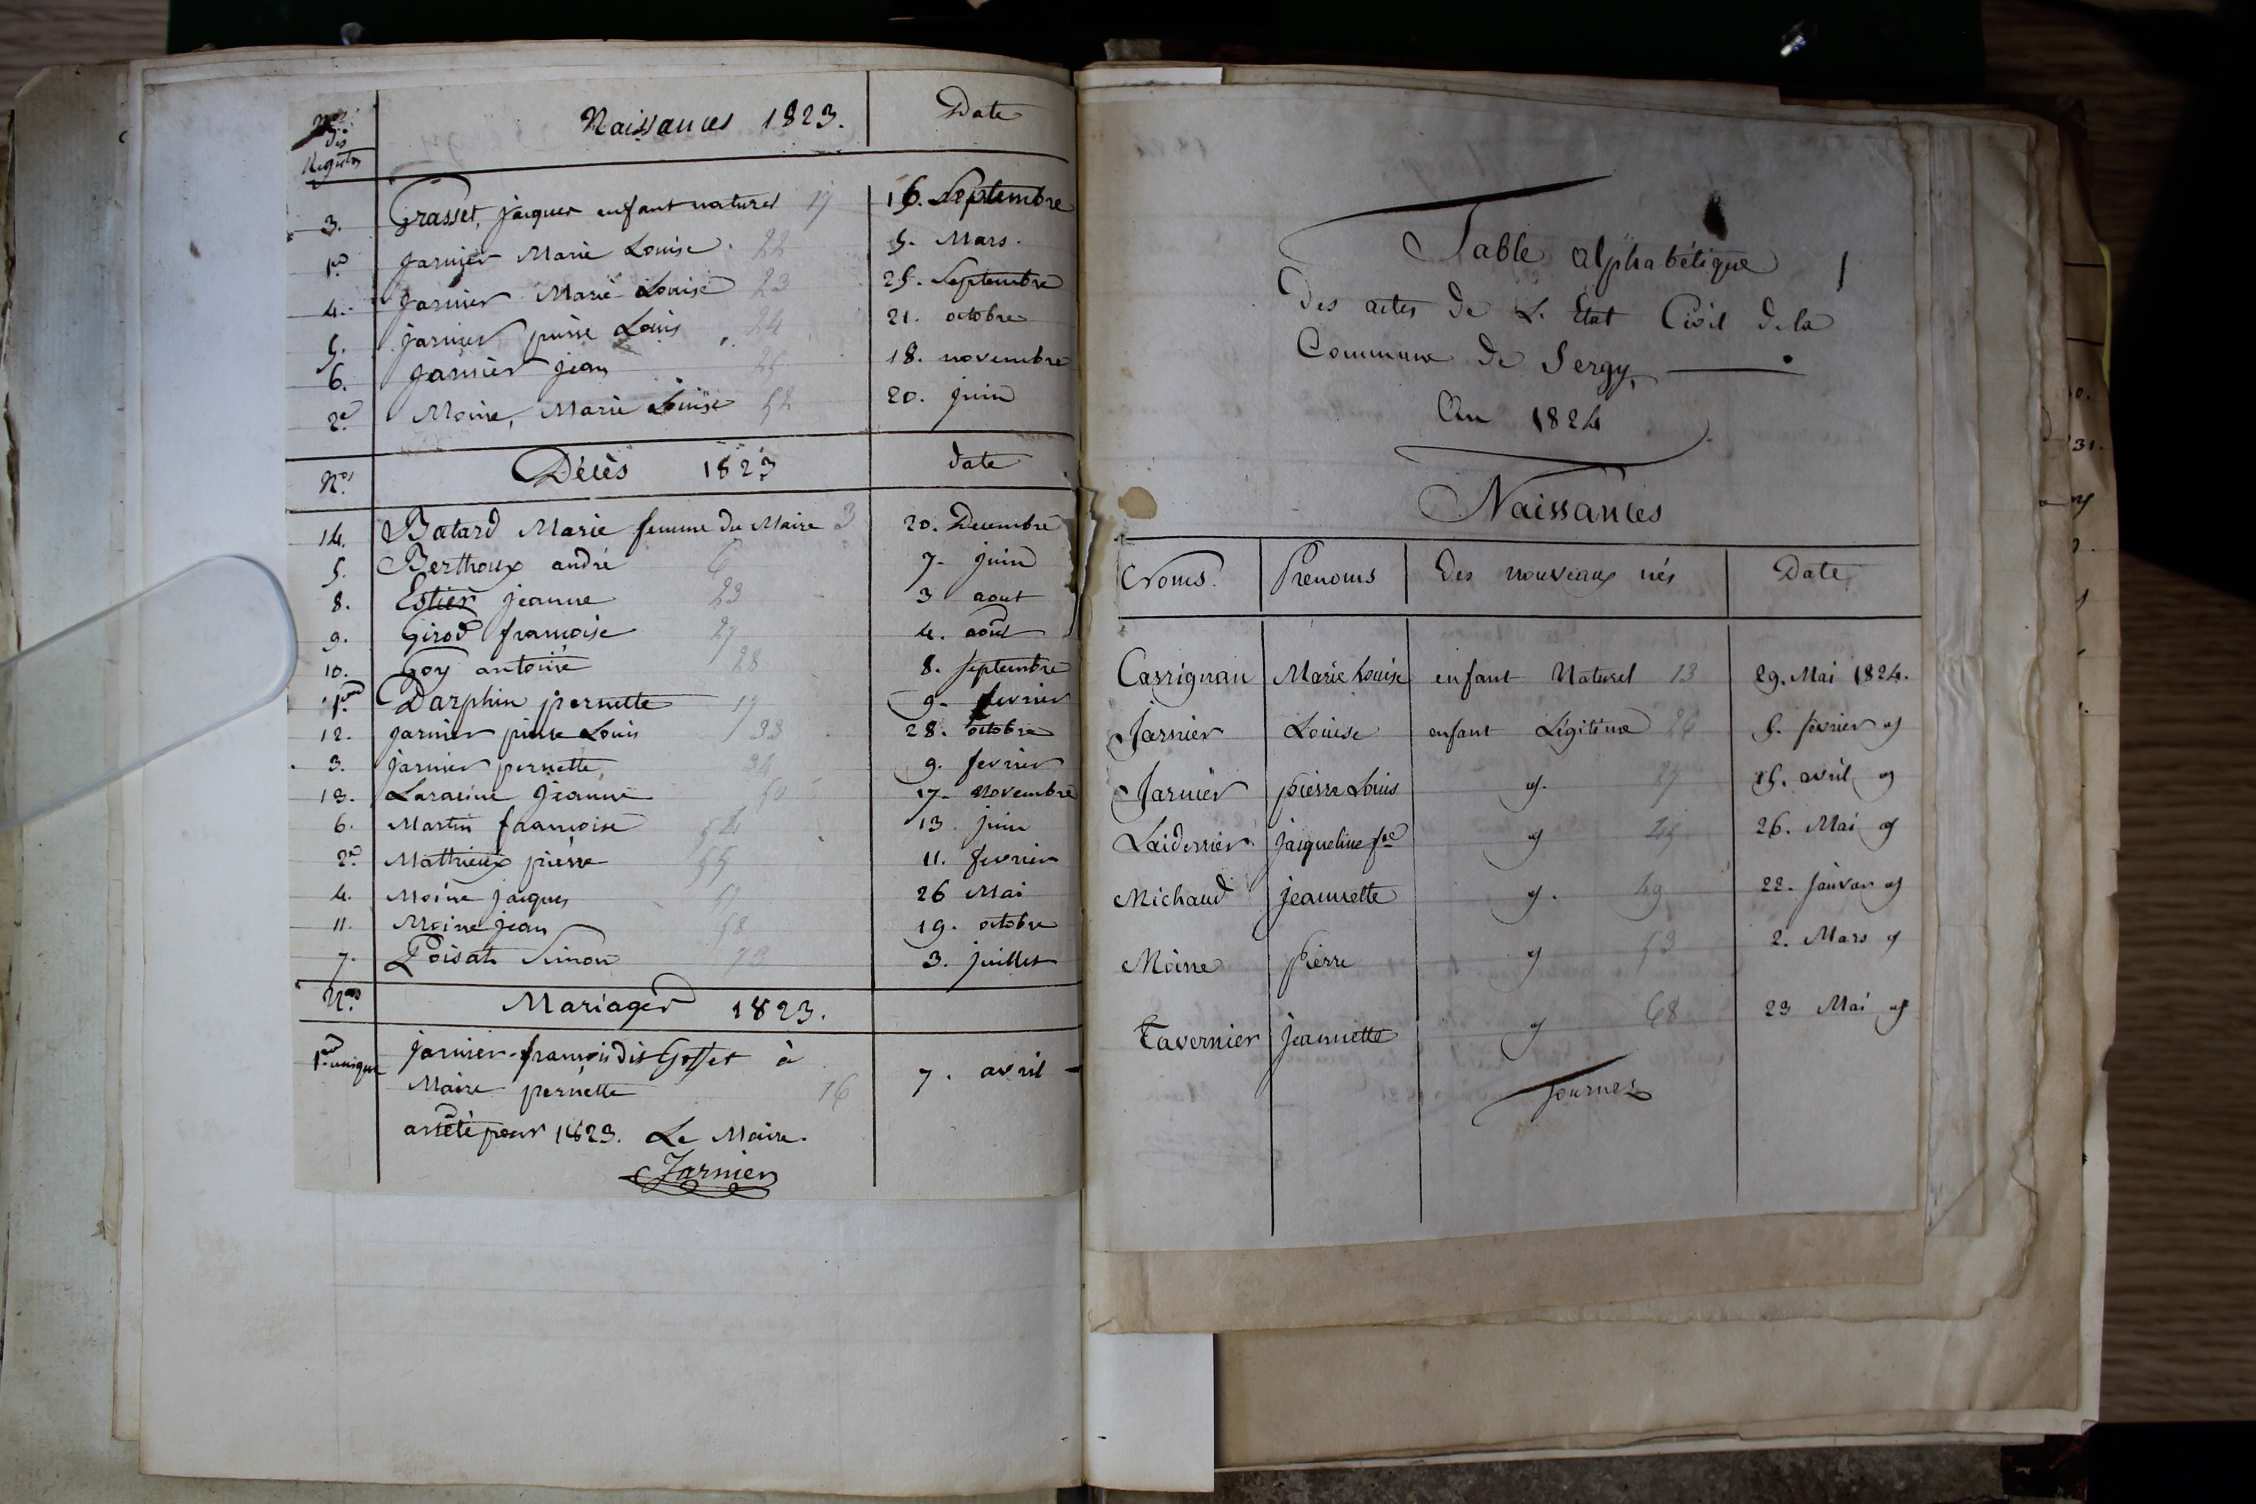 Nos des Registres Naissances 1823. Date
3. Grasset, jacques enfant naturel 17 16. Septembre
1er Jarnier Marie Louise 22 5. Mars.
4. Jarnier Marie Louise 23 25. Septembre
5. Jarnier pierre Louis 24 21. octobre
6. Jarnier jean 25 18. novembre
2e Moine, Marie Louise 52 20. juin
Nos Décès 1823 date
14. Batard Marie femme du Maire 3 20. Decembre
5. Berthoux andré 6 7. juin
8. Estier jeanne 23 3 aout
9. Girod francoise 27 4. août
10. Goy antoine 28 8. septembre
1er Darphin pernette 17 9. fevrier
12. Jarnier pierre Louis 33 28. octobre
3. Jarnier pernette 34 9. fevrier
13. Laracine Jeanne 50 17. novembre
6. Martin francoise 54 13. juin
2e Mathieux pierre 55 11. fevrier
4. Moine jacques 57 26 Mai
11. Moine jean 58 19. octobre
7. Poisat Simon 73 3. juillet
Nos Mariages 1823.
1er unique Jarnier francois dit Gosset à
Maire pernette 16 7. avril
arrêté pour 1823. Le Maire.
Jarnier
Table alphabétique
Des actes de L. Etat Civil de la
Commune de Sergy
An 1824
Naissances
Noms. Prenoms Des nouveaux nés Date
Carrignan Marie Louise enfant Naturel 13 29. Mai 1824.
Jarnier Louise enfant Légitime 26 5. fevrier
Jarnier pierre Louis 27 15. avril
Laidernier jacqueline fse 45 26. Mai
Michaud jeannette 49 22. Janvier
Moine pierre 53 2. Mars
Tavernier Jeannette 68 23 Mai
Tournez